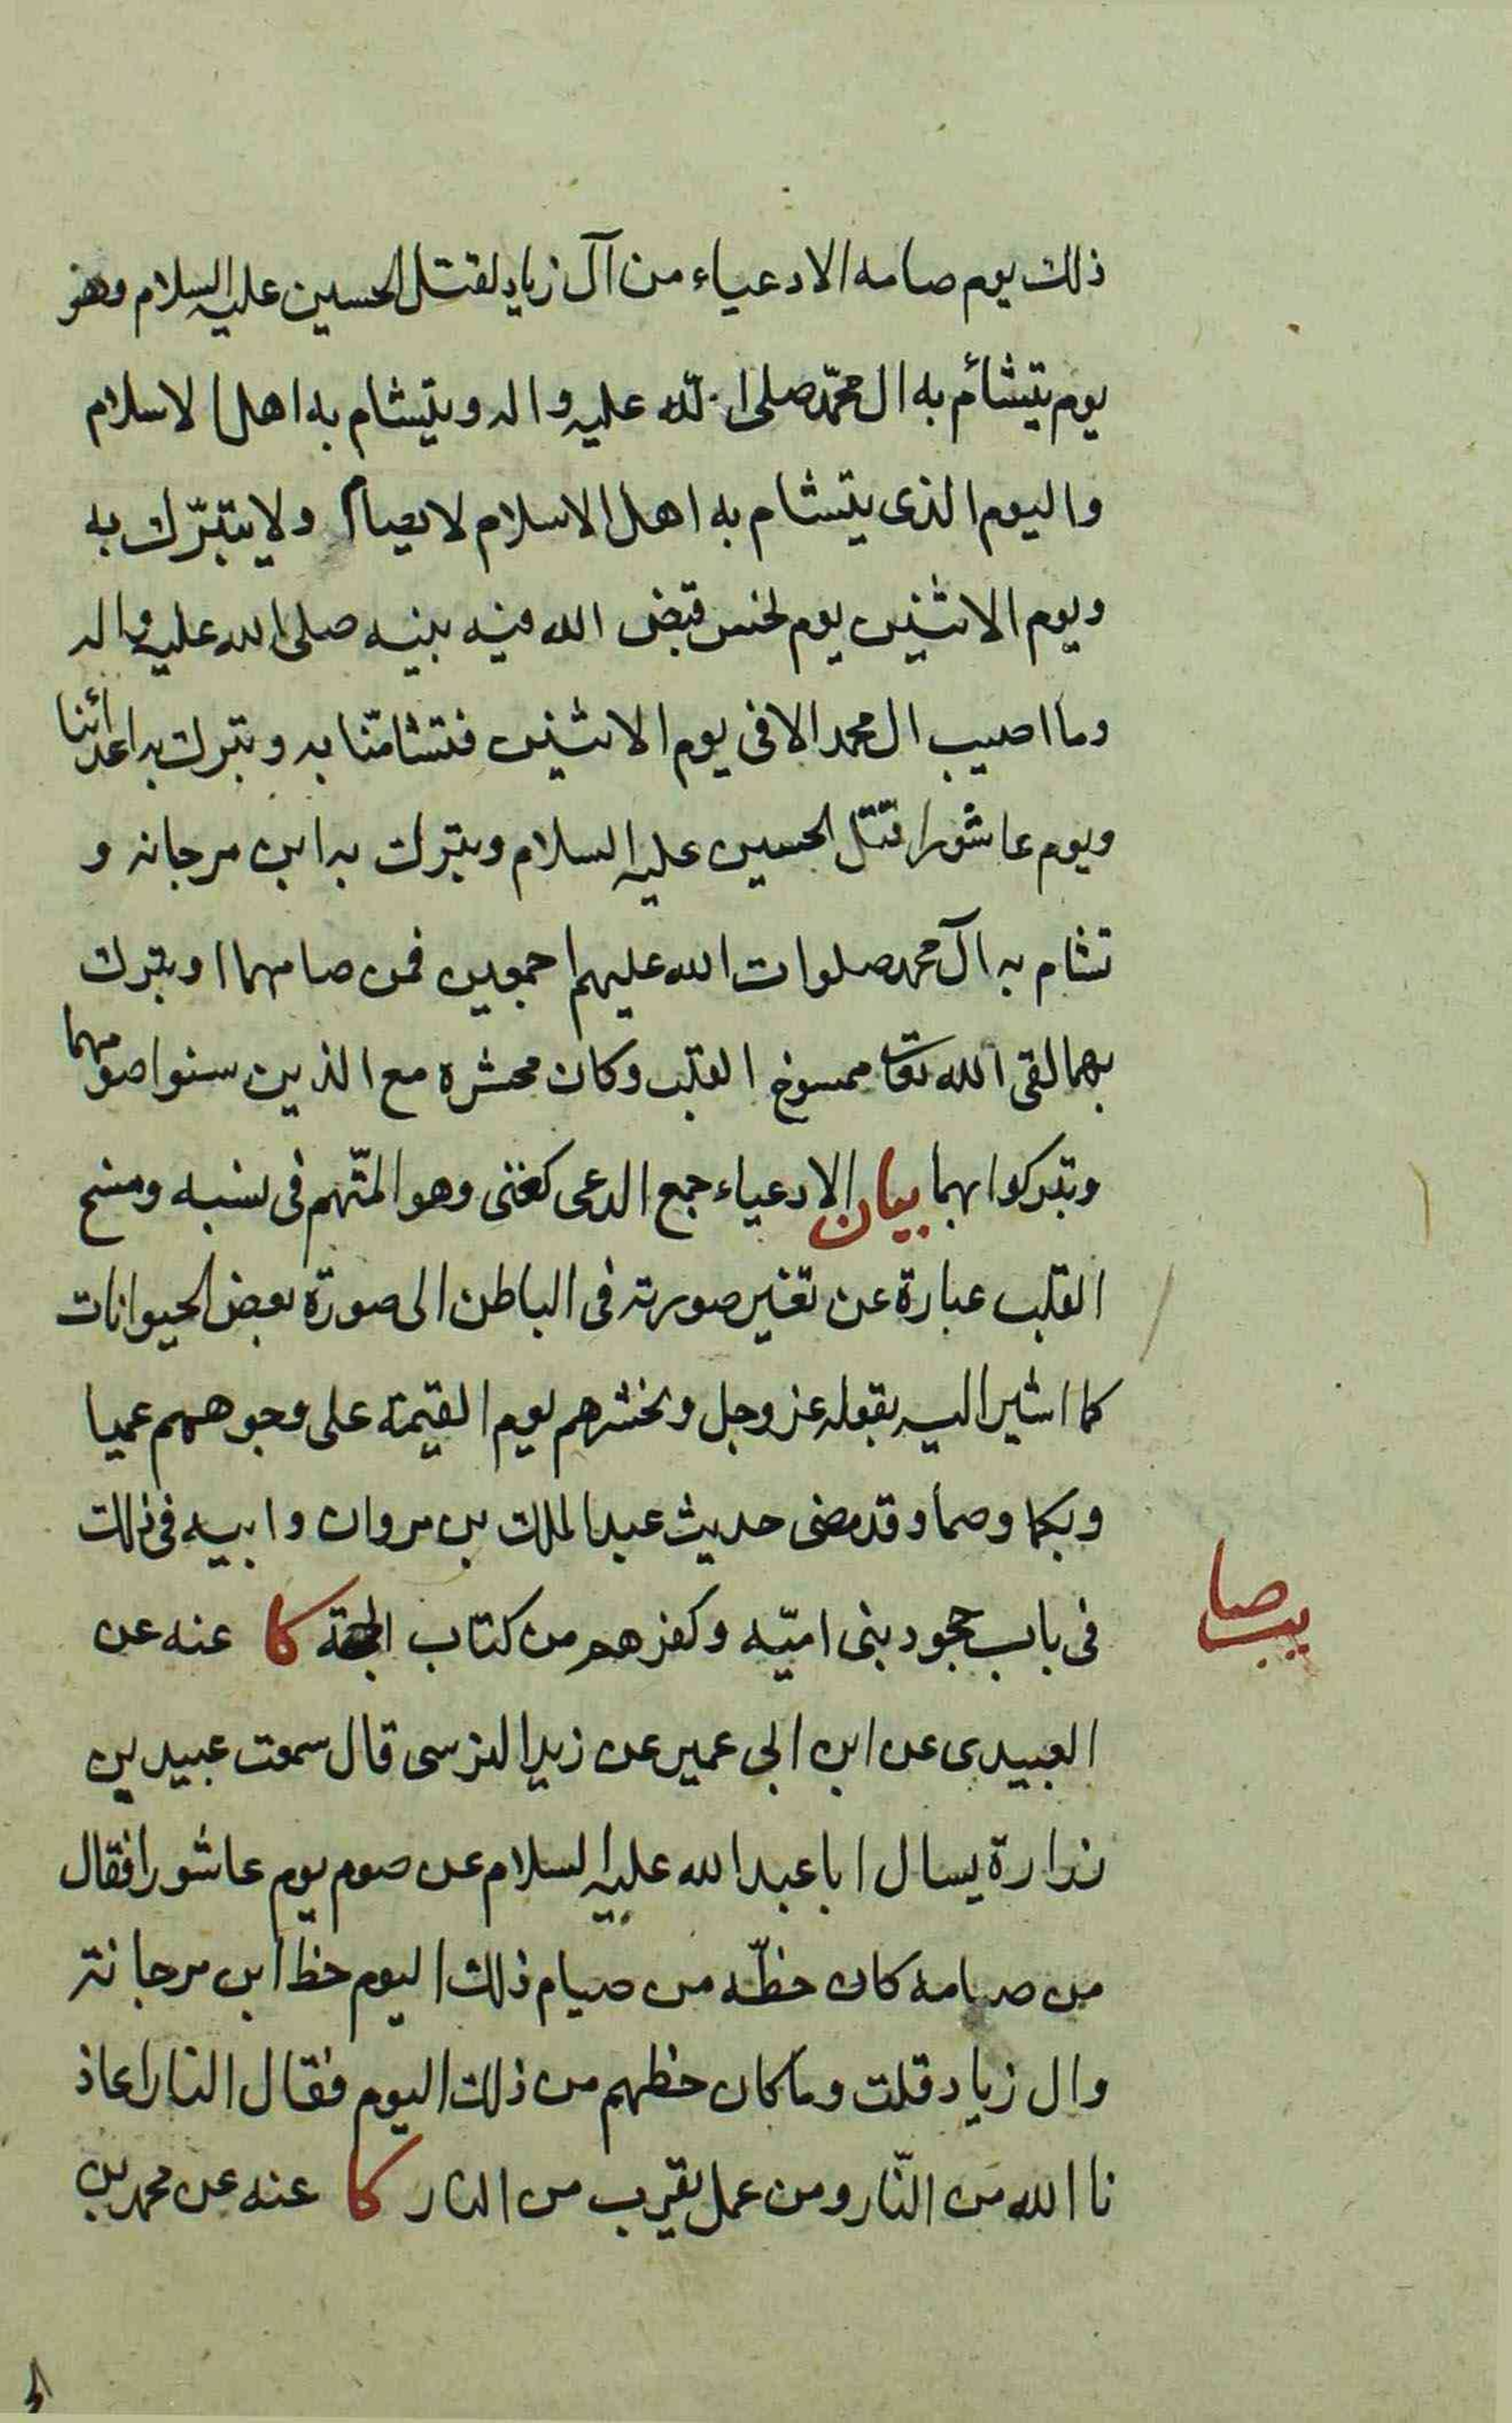 ذلك يوم صامه الادعياء من آل زياد لقتل الحسين عليه السلام وهو
يوم يتشأم به ال محمّد صلى الله عليه واله ويتشام به اهل الاسلام
واليوم الذى يتشام به اهل الاسلام لا يصام ولا يتبرّك به
ويوم الاثنين يوم نحس قبض الله فيه نبيه صلى الله عليه واله
وما اصيب ال محمد الا فى يوم الاثنين فتشامّنا به وتبرك به اعدائنا
ويوم عاشورا قتل الحسين عليه السلام وتبرك به ابن مرجانه و
تشام به آل محمد صلوات الله عليهم اجمعين فمن صامهما او تبرك
بهما لقى الله تعا ممسوخ القلب وكان محشره مع الذين سنوا صومهما
وتبركوا بهما بيان الادعياء جمع الدعى كغنى وهو المتّهم فى نسبه ومسخ
القلب عبارة عن تغير صورته فى الباطن الى صورة بعض الحيوانات
كما اشير اليه بقوله عز وجل ونحشرهم يوم القيمة على وجوههم عميا
وبكما وصما وقد مضى حديث عبد الملك بن مروان وابيه فى ذلك
فى باب جحود بنى اميّه وكفرهم من كتاب الحجة كا عنه عن
العبيدى عن ابن ابى عمير عن زيد النرسى قال سمعت عبيد بن
زرارة يسال ابا عبد الله عليه السلام عن صوم يوم عاشورا فقال
من صامه كان حظّه من صيام ذلك اليوم حظ ابن مرجانة
وال زياد قلت وما كان حظهم من ذلك اليوم فقال النار اعاذ
نا الله من النّار ومن عمل يقرب من النار كا عنه عن محمد بن